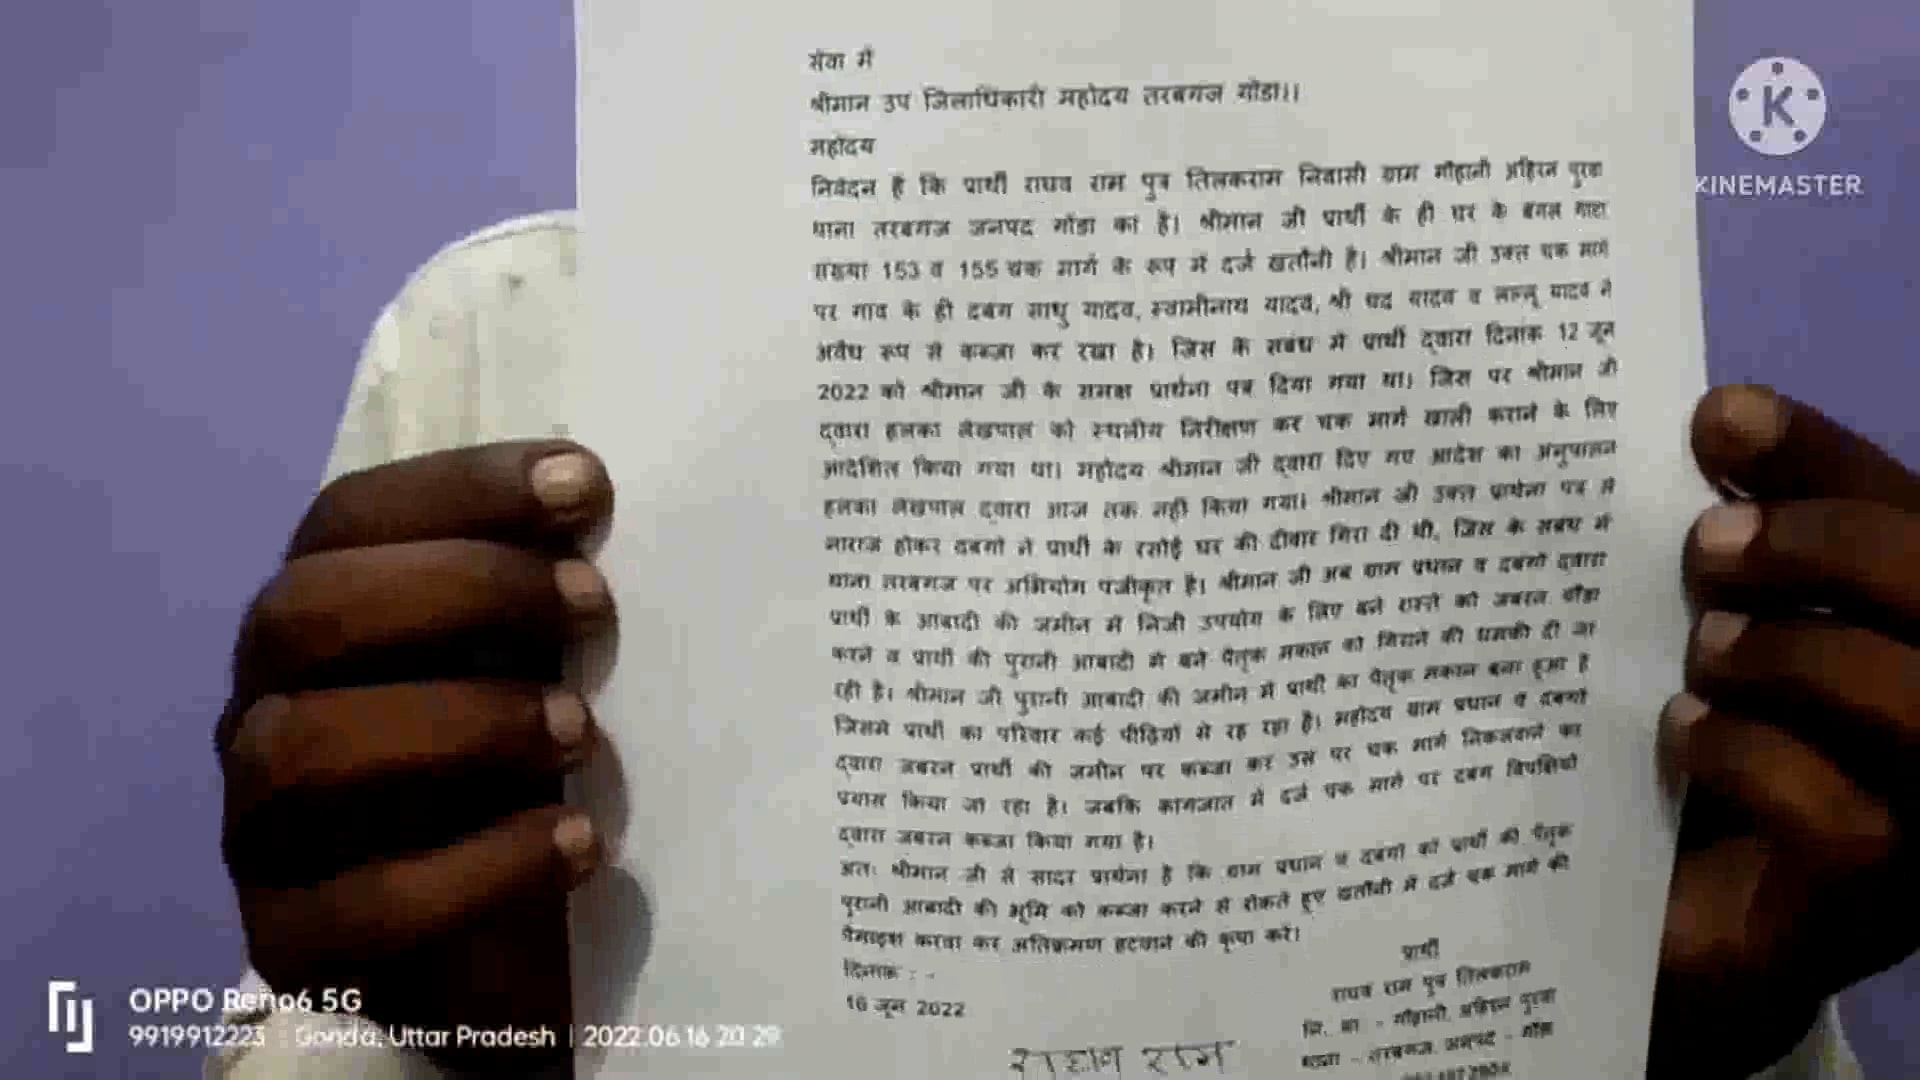 सेवा में
श्रीमान उप जिलाधिकारी महोदय तरबगंज गोंडा।।
महोदय
निवेदन है कि प्रार्थी राघव राम पुत्र तिलकराम निवासी ग्राम गौहानी अहिरन पुरवा
थाना तरबगंज जनपद गोंडा का है। श्रीमान जी प्रार्थी के ही घर के बगल गाटा
संख्या 153 व 155 चक मार्ग के रूप में दर्ज खतौनी है। श्रीमान जी उक्त चक मार्ग
पर गांव के ही दबंग साधु यादव, स्वामीनाथ यादव, श्री चंद यादव व लल्लू यादव ने
अवैध रूप से कब्जा कर रखा है। जिस के संबंध में प्रार्थी द्वारा दिनांक 12 जून
2022 को श्रीमान जी के समक्ष प्रार्थना पत्र दिया गया था। जिस पर श्रीमान जी
द्वारा हलका लेखपाल को स्थलीय निरीक्षण कर चक मार्ग खाली कराने के लिए
आदेशित किया गया था। महोदय श्रीमान जी द्वारा दिए गए आदेश का अनुपालन
हलका लेखपाल द्वारा आज तक नहीं किया गया। श्रीमान जी उक्त प्रार्थना पत्र से
नाराज होकर दबंगों ने प्रार्थी के रसोई घर की दीवार गिरा दी थी, जिस के संबंध में
थाना तरबगंज पर अभियोग पंजीकृत है। श्रीमान जी अब ग्राम प्रधान व दबंगों द्वारा
प्रार्थी के आबादी की जमीन में निजी उपयोग के लिए बने रास्ते को जबरन चौड़ा
करने व प्रार्थी की पुरानी आबादी में बने पैतृक मकान को गिराने की धमकी दी जा
रही है। श्रीमान जी पुरानी आबादी की जमीन में प्रार्थी का पैतृक मकान बना हुआ है
जिसमे प्रार्थी का परिवार कई पीढ़ियों से रह रहा है। महोदय ग्राम प्रधान व दबंगों
द्वारा जबरन प्रार्थी की जमीन पर कब्जा कर उस पर चक मार्ग निकलवाने का
प्रयास किया जा रहा है। जबकि कागजात में दर्ज चक मार्ग पर दबंग विपक्षियों
द्वारा जबरन कब्जा किया गया है।
अतः श्रीमान जी से सादर प्रार्थना है कि ग्राम प्रधान व दबंगों को प्रार्थी की पैतृक
पुरानी आबादी की भूमि को कब्जा करने से रोकते हुए खतौनी में दर्ज चक मार्ग की
पैमाइश करवा कर अतिक्रमण हटवाने की कृपा करें।
प्रार्थी
दिनांक : -
राघव राम पुत्र तिलकराम
16 जून 2022
नि. ग्रा - गौहानी, अहिरन पुरवा
थाना - तरबगंज, जनपद - गोंडा
राघव राम
KINEMASTER
OPPO Reno6 5G
9919912223 Gonda, Uttar Pradesh | 2022.06.16 20:29